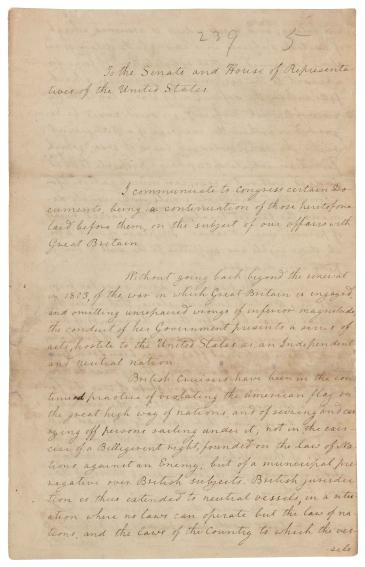 239 5
To the Senate and House of Representa-
tives of the United States
I communicate to Congress certain Do-
cuments, being a continuation of those heretofore
laid before them, on the subject of our affairs with
Great Britain
Without going back beyond the renewal
in 1803, of the war in which Great Britain is engaged,
and omitting unrepaired wrongs of inferior magnitude,
the conduct of her Government presents a series of
acts, hostile to the United States as an Independent
and neutral nation.
British Cruisers have been in the con-
tinued practice of violating the American flag on
the great high way of nations, and of seizing and car-
rying off persons sailing under it; not in the exer-
cise of a Belligerent right, founded on the Law of Na-
tions against an Enemy, but of a municipal pre-
rogative over British subjects. British jurisdic-
tion is thus extended to neutral vessels, in a situ-
ation where no laws can operate but the law of na-
tions, and the laws of the Country to which the ves-
sels